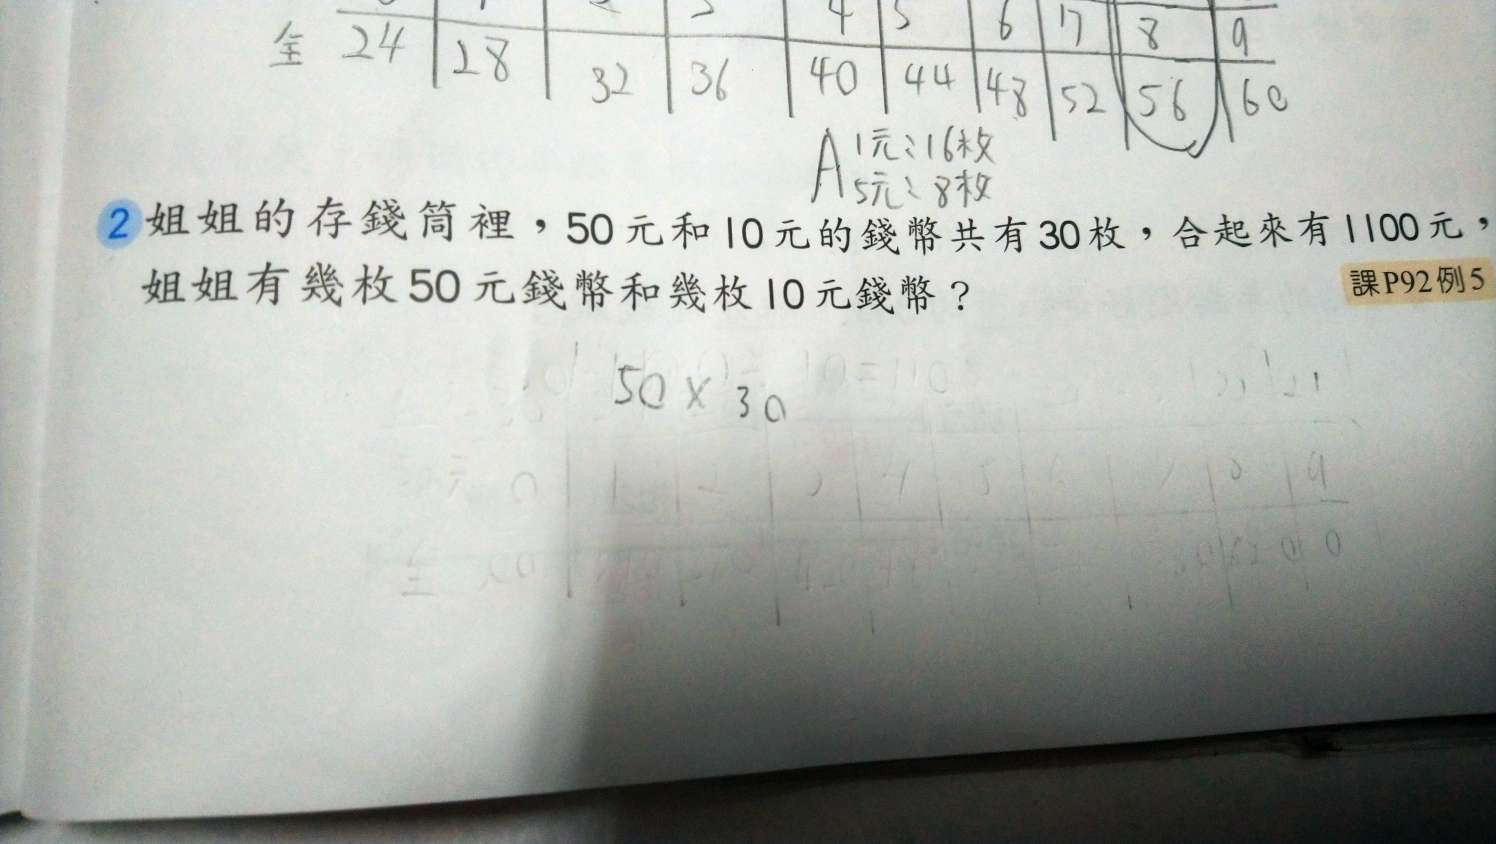 4 5 6 7 8 9
全 24 28 32 36 40 44 48 52 56 60
A 1元:16枚
5元:8枚
2 姐姐的存錢筒裡,50元和10元的錢幣共有30枚,合起來有1100元,
姐姐有幾枚50元錢幣和幾枚10元錢幣?
課P92例5
50 × 30
元 0 1 2 3 4 5 9
全